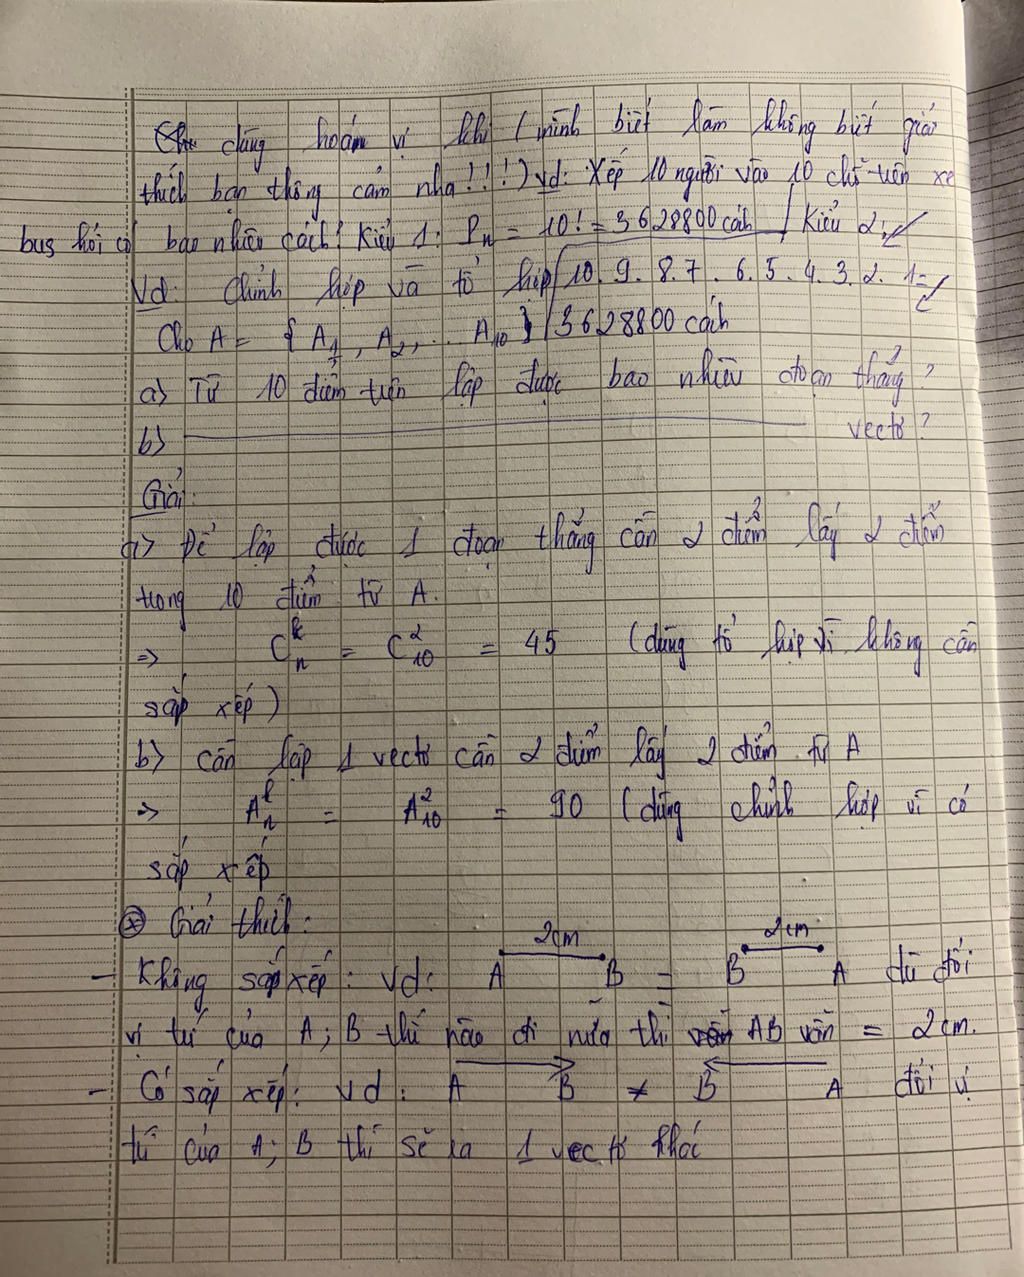 dùng hoán vị khi (mình biết làm không biết giải
thích bạn thông cảm nha!!!) vd: Xếp 10 người vào 10 chỗ trên xe
bus hỏi có bao nhiêu cách? Kiểu 1: Pn = 10! = 3628800 cách / Kiểu 2:
Vd: Chỉnh hợp và tổ hợp / 10.9.8.7.6.5.4.3.2.1=
Cho A = {A1, A2, ... A10} / 3628800 cách
a) Từ 10 điểm trên lập được bao nhiêu đoạn thẳng?
b) ———————————— vectơ?
Giải:
a) Để lập được 1 đoạn thẳng cần 2 điểm lấy 2 điểm
trong 10 điểm từ A.
=> C_n^k = C_10^2 = 45 (dùng tổ hợp vì không cần
sắp xếp)
b) Cần lập 1 vectơ cần 2 điểm lấy 2 điểm từ A
=> A_n^k = A_10^2 = 90 (dùng chỉnh hợp vì có
sắp xếp
⊗ Giải thích:
2cm 2cm
- Không sắp xếp: vd: A B = B A dù đổi
vị trí của A; B thế nào đi nữa thì AB vẫn = 2cm.
- Có sắp xếp: vd: A B ≠ B A đổi vị
trí của A; B thì sẽ ra 1 vectơ khác